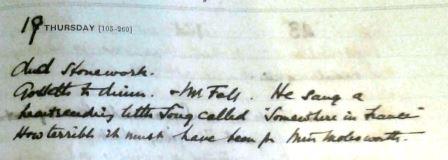 19 THURSDAY [105-260]
Did Stonework.
to dinner. & Mr Fell. He sang a
heartrending little song called "Somewhere in France"
How terrible it must have been for Miss Molesworth.